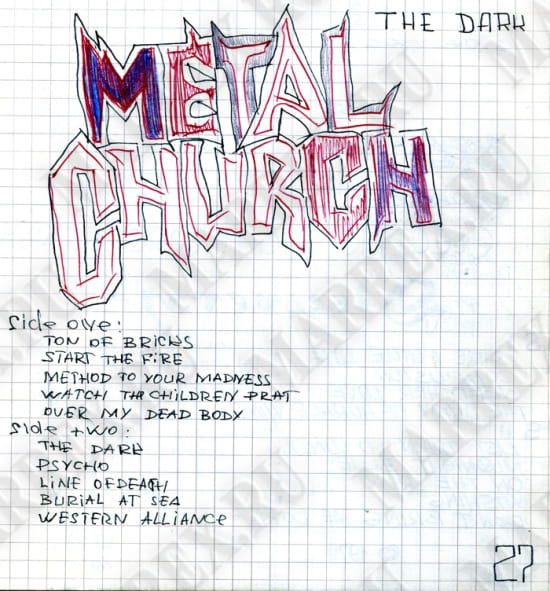 THE DARK
METAL
CHURCH
side ove:
TON OF BRICKS
START THE FIRE
METHOD TO YOUR MADNESS
WATCH TH CHILDREN PRAT
OVER MY DEAD BODY
side two:
THE DARK
PSYCHO
LINE OF DEATH
BURIAL AT SEA
WESTERN ALLIANCE
27
MARREX.RU